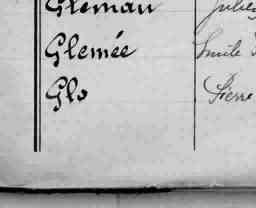 Gléman Jules
Glemée Emile
Glo Pierre